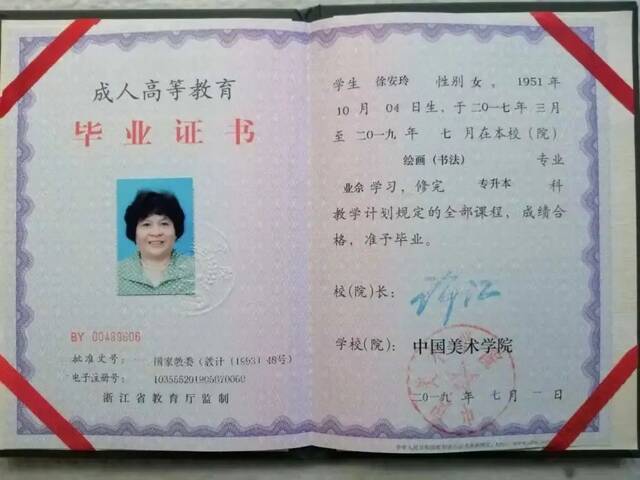 成人高等教育
毕业证书
BY 00489806
批准文号： 国家教委（教计（1993）48号）
电子注册号： 103555201905070060
浙江省教育厅监制
学生 徐安玲 性别 女 。 1951 年
10 月 04 日生，于二〇一七年 三月
至 二〇一九 年 七 月在本校（院）
绘画（书法） 专业
业余 学习，修完 专升本 科
教学计划规定的全部课程，成绩合
格，准予毕业。
校（院）长：
学校（院）： 中国美术学院
二〇一九 年 七 月 一 日